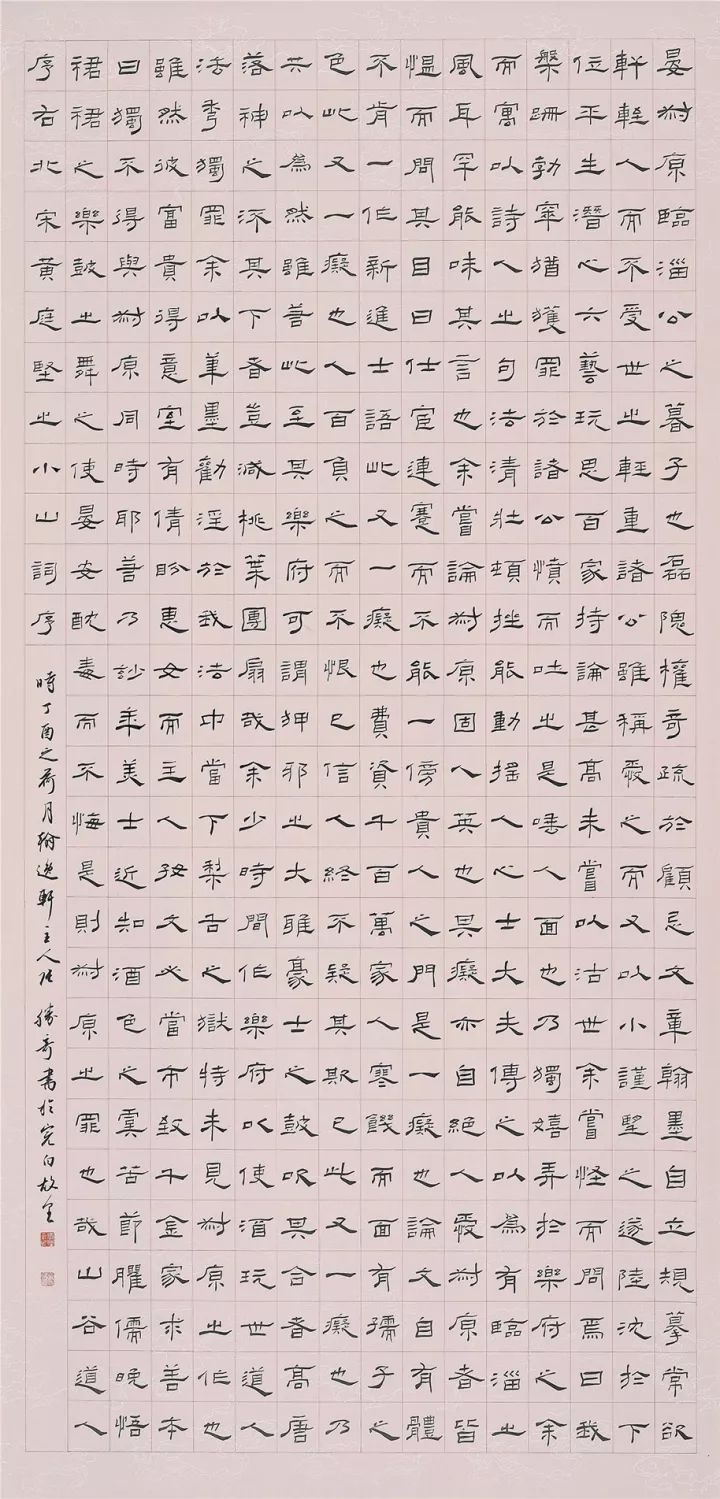 晏叔原臨淄公之暮子也磊隗權奇疏於顧忌文章翰墨自立規摹常欲
軒輊人而不受世之輕重諸公雖稱愛之而又以小謹望之遂陸沈於下
位平生潛心六藝玩思百家持論甚高未嘗以沽世余嘗怪而問焉曰我
槃跚勃窣猶獲罪於諸公憤而吐之是唾人面也乃獨嬉弄於樂府之余
而寓以詩人之句法清壯頓挫能動搖人心士大夫傳之以為有臨淄之
風耳罕能味其言也余嘗論叔原固人英也其癡亦自絕人愛叔原者皆
慍而問其目曰仕宦連蹇而不能一傍貴人之門是一癡也論文自有體
不肯一作新進士語此又一癡也費資千百萬家人寒饑而面有孺子之
色此又一癡也人百負之而不恨已信人終不疑其欺已此又一癡也乃
共以為然雖若此至其樂府可謂狎邪之大雅豪士之鼓吹其合者高唐
落神之流其下者豈減桃葉團扇哉余少時間作樂府以使酒玩世道人
法秀獨罪余以筆墨勸淫於我法中當下犁舌之獄特未見叔原之作也
雖然彼富貴得意室有倩盼惠女而主人好文必當市致千金家求善本
曰獨不得與叔原同時耶若乃妙年美士近知酒色之虞苦節臞儒晚悟
裙裙之樂鼓之舞之使晏安酖毒而不悔是則叔原之罪也哉山谷道人
序右北宋黃庭堅之小山詞序
時丁酉之荷月翰逸軒主人張勝奇書於完白故里